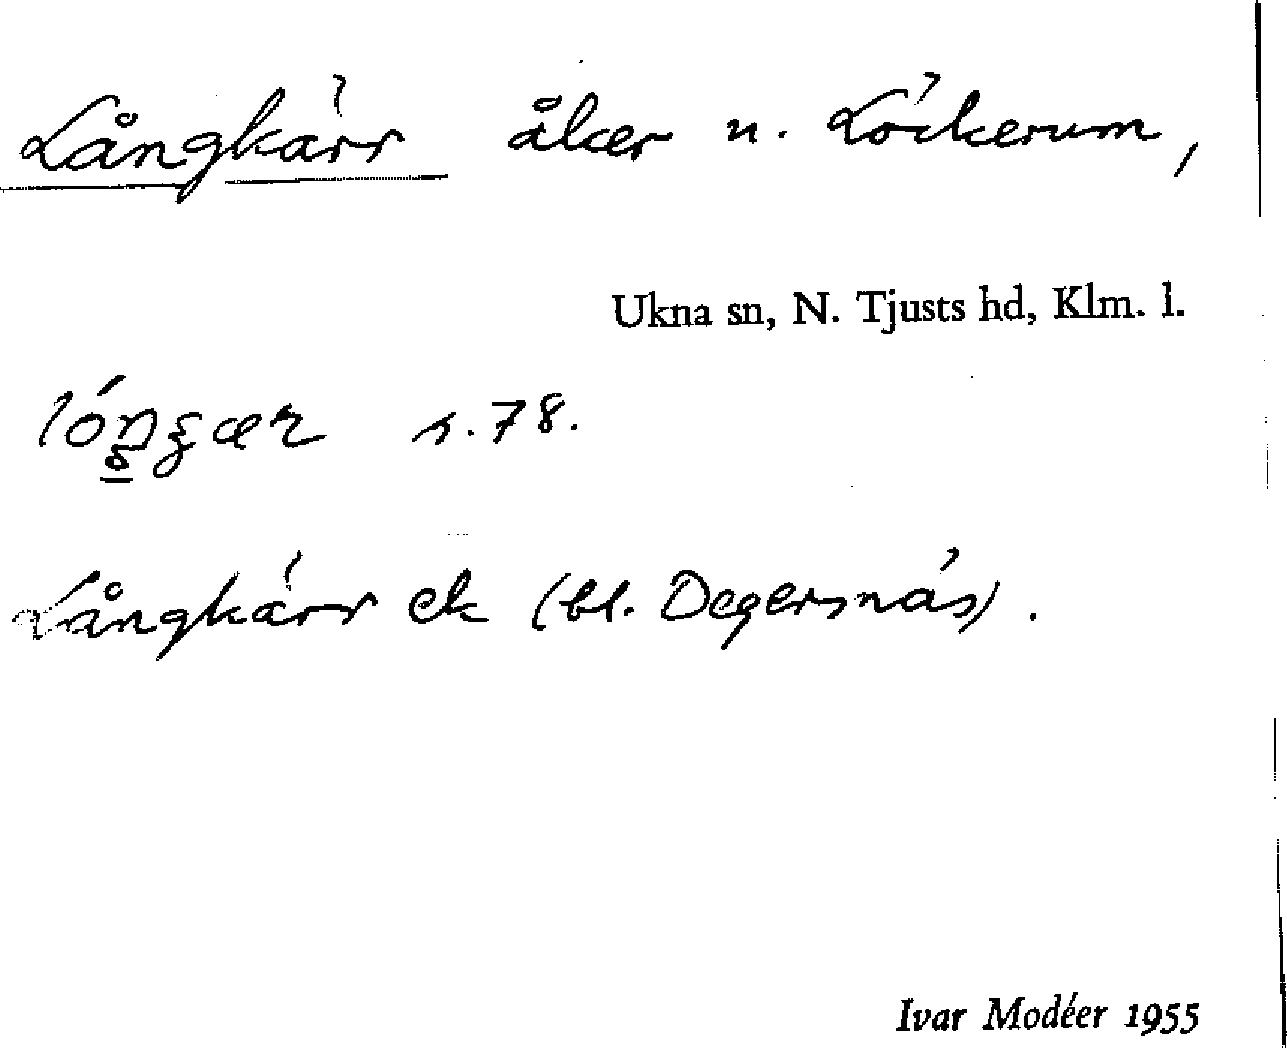 Långkärr åker u. Löckerum,
Ukna sn, N. Tjusts hd, Klm. l.
s. 78.
Långkärr ek (bl. Degersnäs).
Ivar Modéer 1955